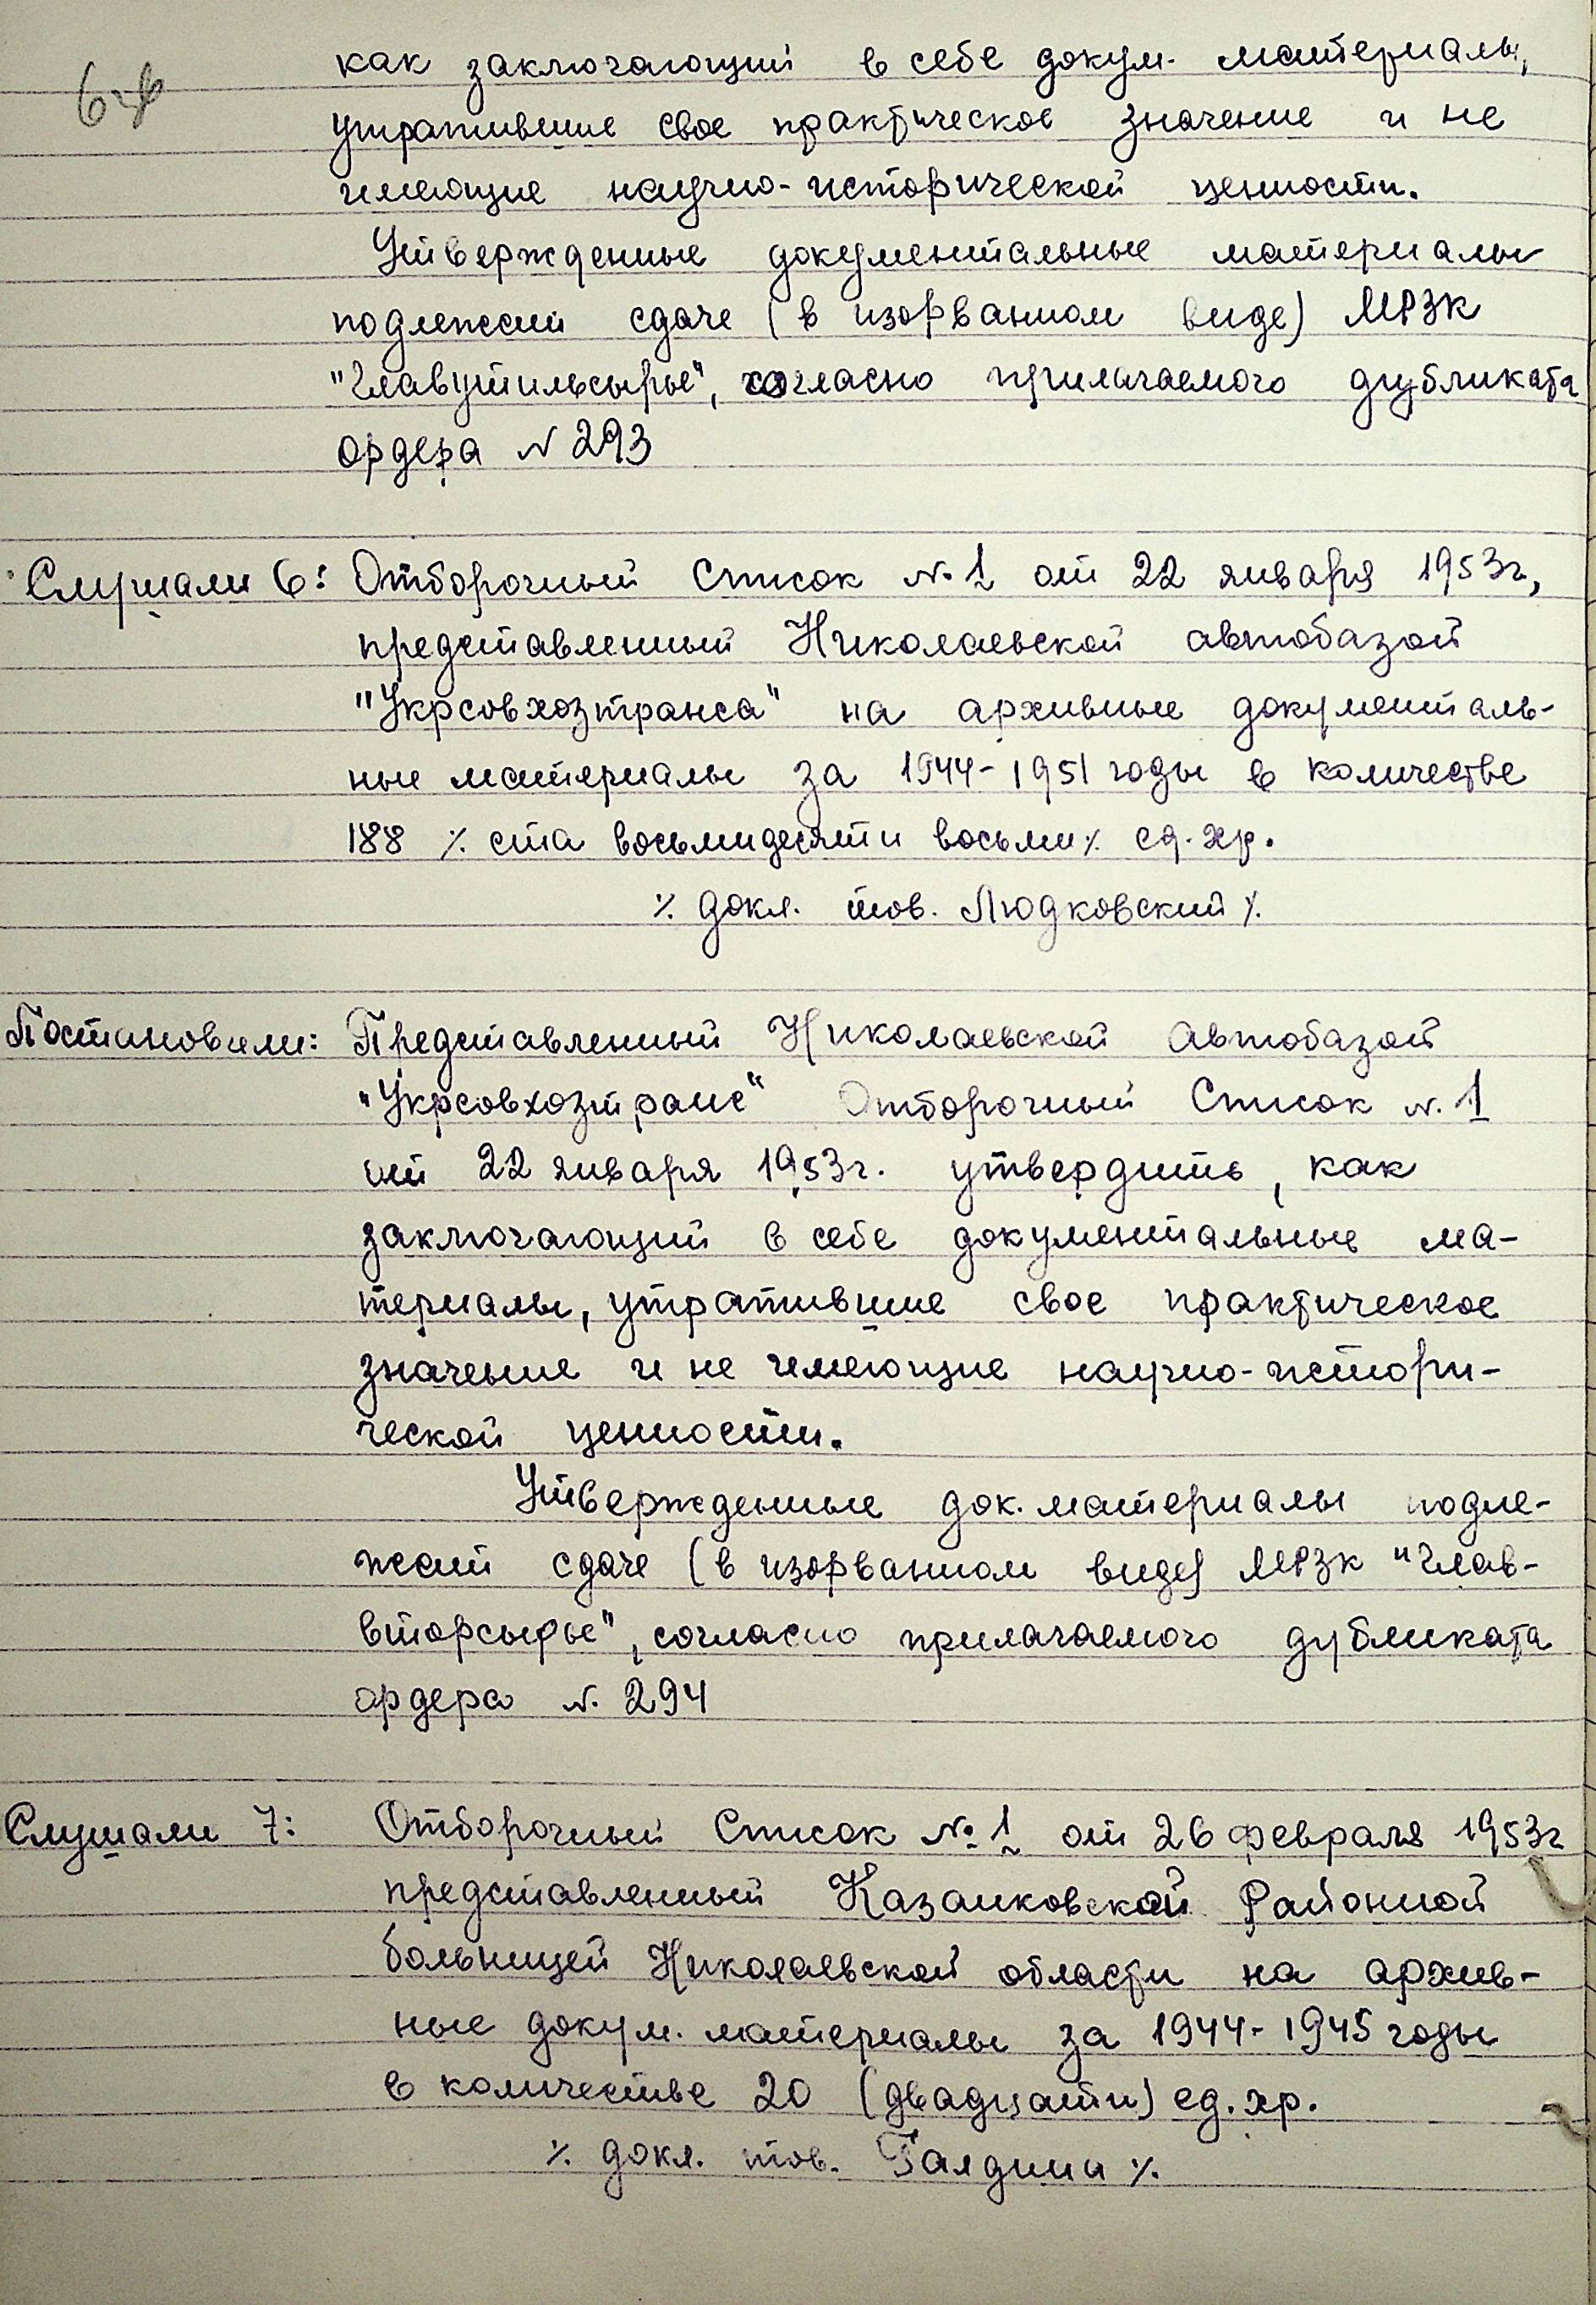 как заключающий в себе докум. материалы,
утратившие свое практическое значение и не
имеющие научно-исторической ценности.
Утвержденные документальные материалы
подлежат сдаче (в изорванном виде) МРЗК
"Главутильсырье", согласно прилагаемого дубликата
ордера N 293
Слушали 6: Отборочный Список N. 1 от 22 января 1953г.,
представленный Николаевской автобазой
"Укрсовхозтранса" на архивные документаль-
ные материалы за 1944-1951 годы в количестве
188 ٪ ста восьмидесяти восьми٪ ед. хр.
٪ докл. тов. Людковский ٪.
Постановили: Представленный Николаевской Автобазой
"Укрсовхозтранс" Отборочный Список N. 1
от 22 января 1953г. утвердить, как
заключающий в себе документальные ма-
териалы, утратившие свое практическое
значение и не имеющие научно-истори-
ческой ценности.
Утвержденные док. материалы подле-
жат сдаче (в изорванном виде) МРЗК "Глав-
вторсырье", согласно прилагаемого дубликата
ордера N. 294
Слушали 7: Отборочный Список № 1 от 26 февраля 1953г
представленный Казанковской Районной
больницей Николаевской области на архив-
ные докум. материалы за 1944-1945 годы
в количестве 20 (двадцати) ед. хр.
٪ докл. тов. Галдина ٪.